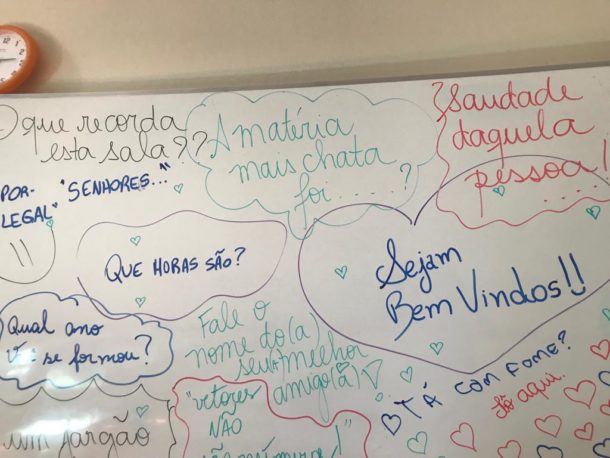 O que recorda
esta sala??
A matéria
mais chata
foi.....?
Saudade
daquela
pessoa!
POR-
LEGAL"
"SENHORES..."
QUE HORAS SÃO?
Sejam
Bem Vindos!!
Qual ano
se formou?
Fale o
nome do(a)
seu melhor
amigo(a)
TÁ COM FOME?
Só aqui.
um jargão
"vetores
NÃO